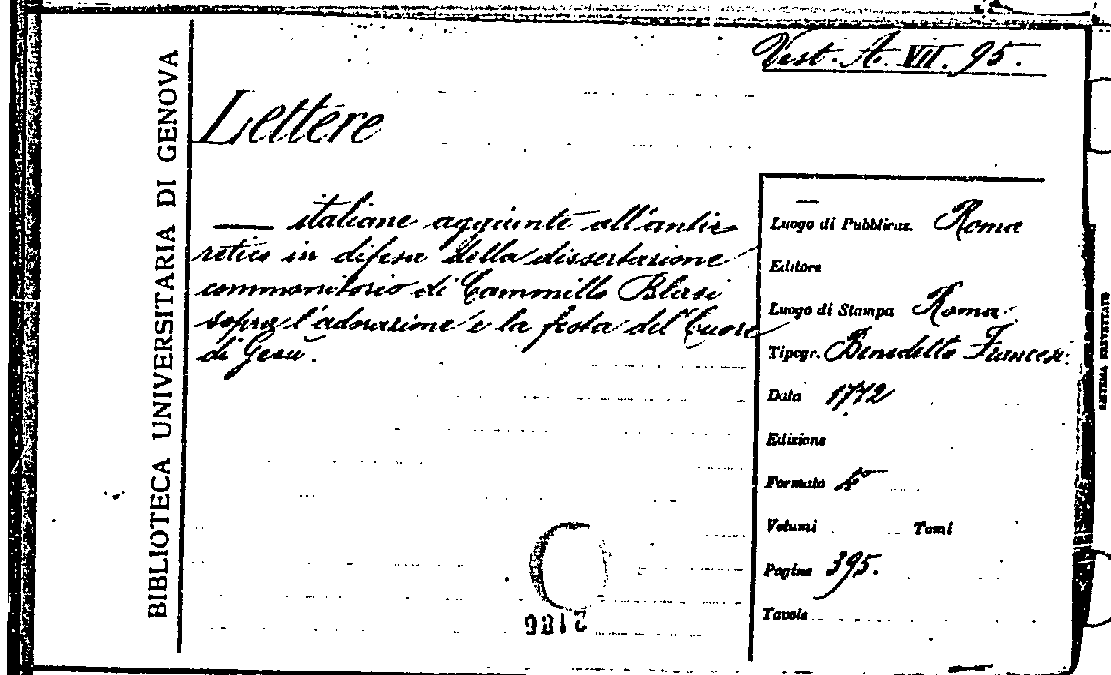 BIBLIOTECA UNIVERSITARIA DI GENOVA
Vest. A. VII. 95.
Lettere
— italiane aggiunte all'antir
retico in difesa della dissertazione
commonitorio di Cammillo Blasi
sopra l'adorazione e la festa del Cuore
di Gesù.
Luogo di Pubblicaz. Roma
Editore
Luogo di Stampa Roma
Tipogr. Benedetto Francesi
Data 1772
Edizione
Formato 4°
Volumi Tomi
Pagine 395.
Tavole